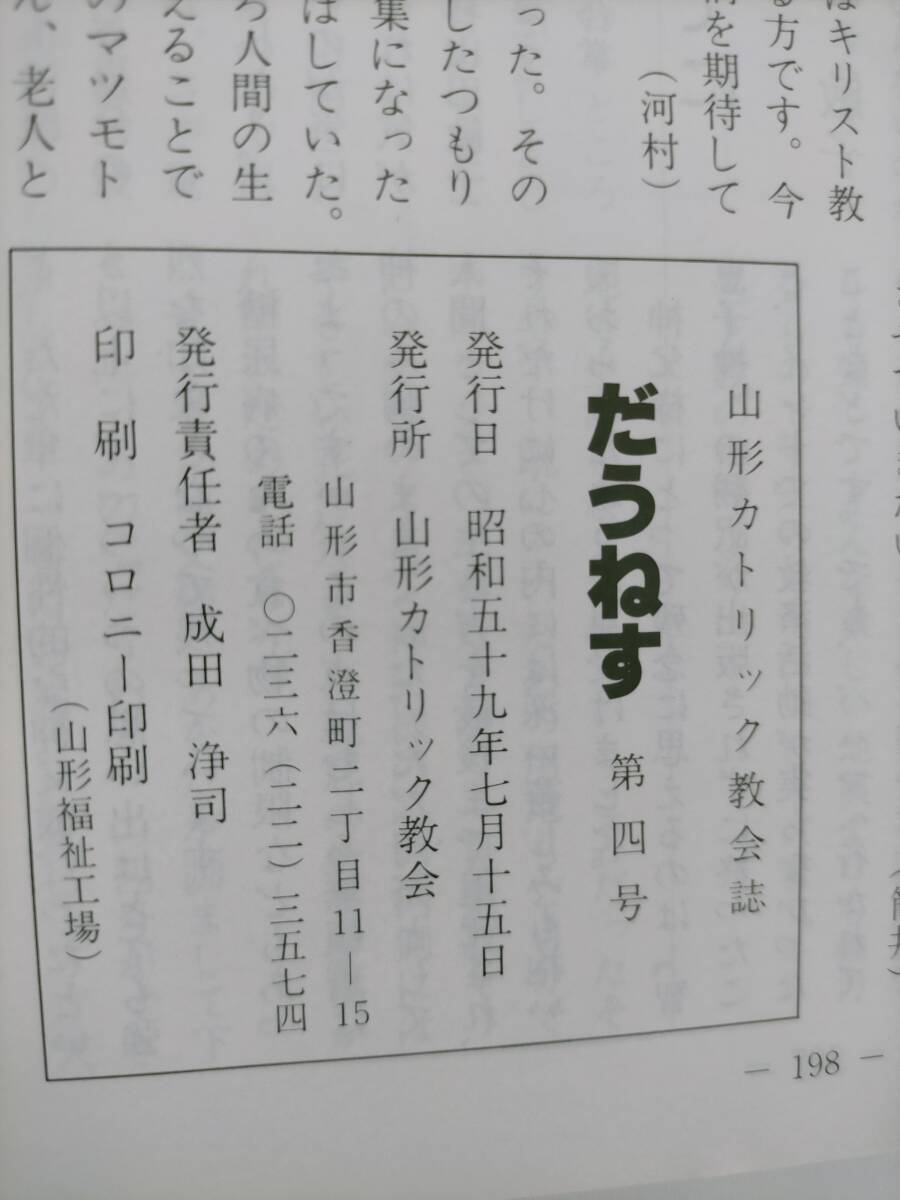 はキリスト教
る方です。今
を期待して
（河村）
った。その
したつもり
集になった
はしていた。
ろ人間の生
えることで
のマツモト
ん、老人と
山形カトリック教会誌
だうねす 第四号
発行日 昭和五十九年七月十五日
発行所 山形カトリック教会
山形市香澄町二丁目11―15
電話 〇二三六（二二）三五七四
発行責任者 成田 浄司
印刷 コロニー印刷
（山形福祉工場）
― 198 ―